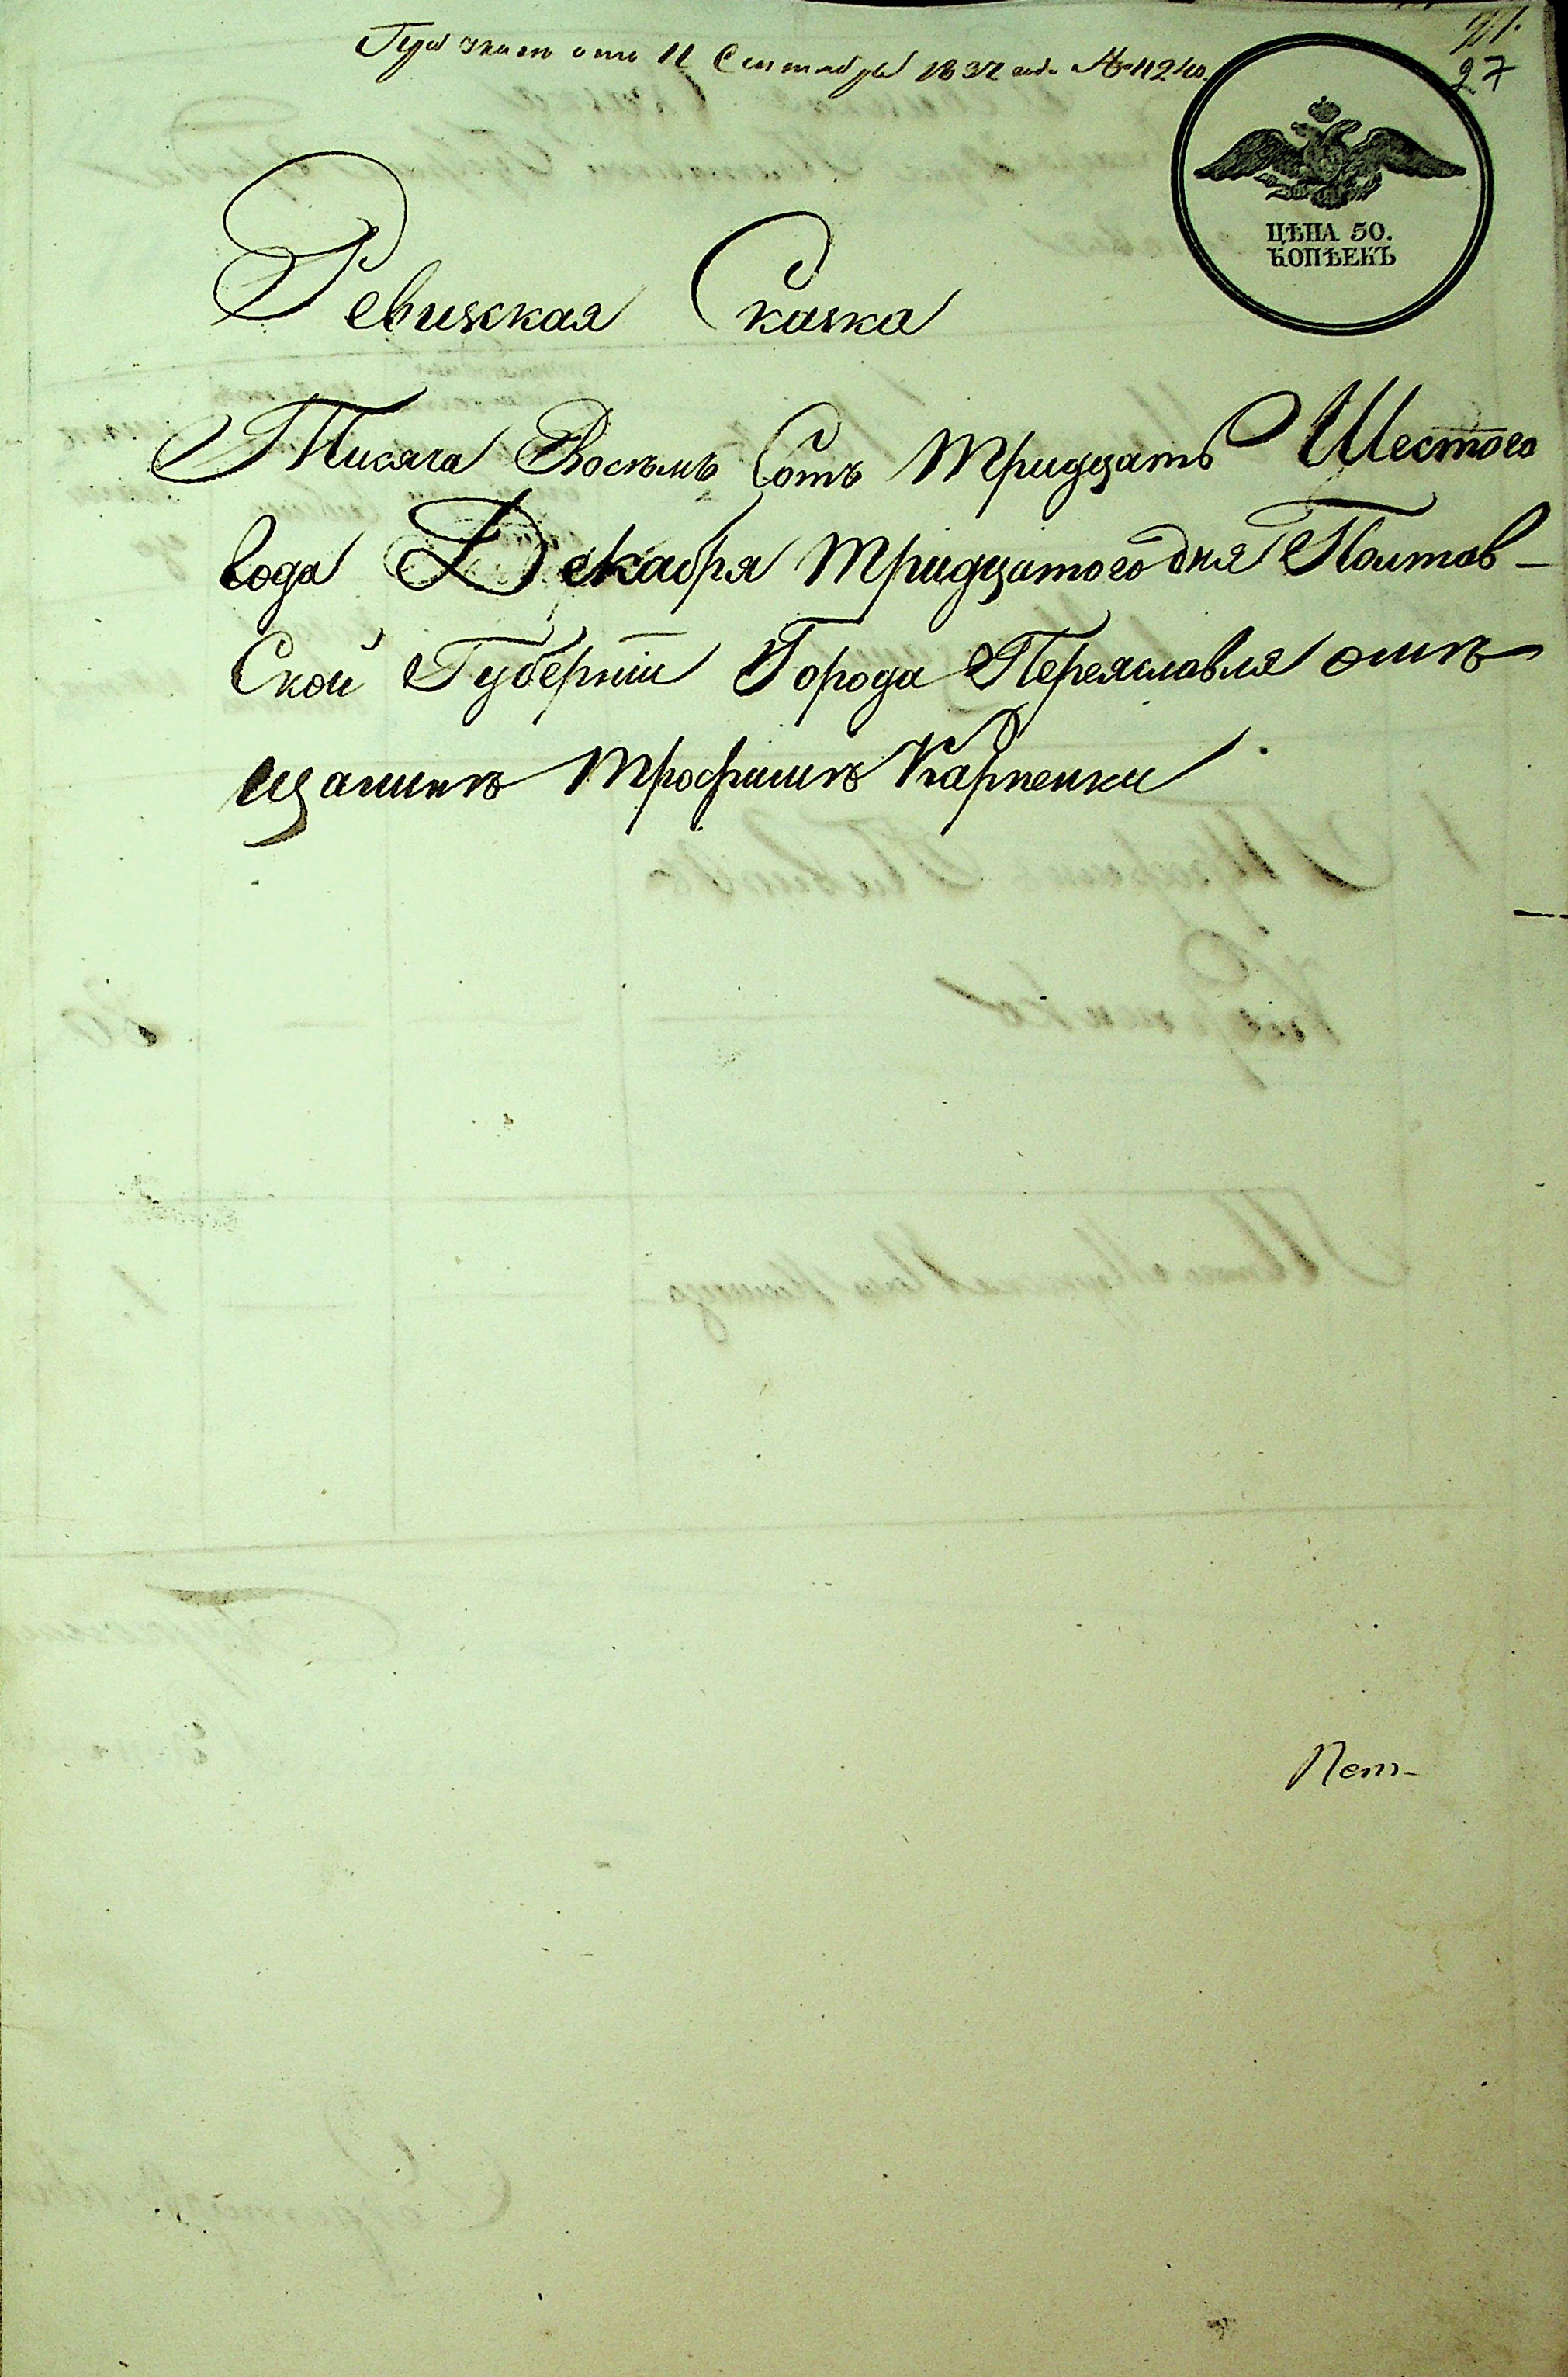 При указе отъ 11 Сентября 1837 года № 11240.
27
ЦѢНА 50.
КОПѢЕКЪ
Ревижская Сказка
Тисяча Восемь Сотъ тридцать Шестого
года Декабря тридцатого дня Полтав-
Ской Губерніи Города Переяславля отъ
Трофима Карпенки.